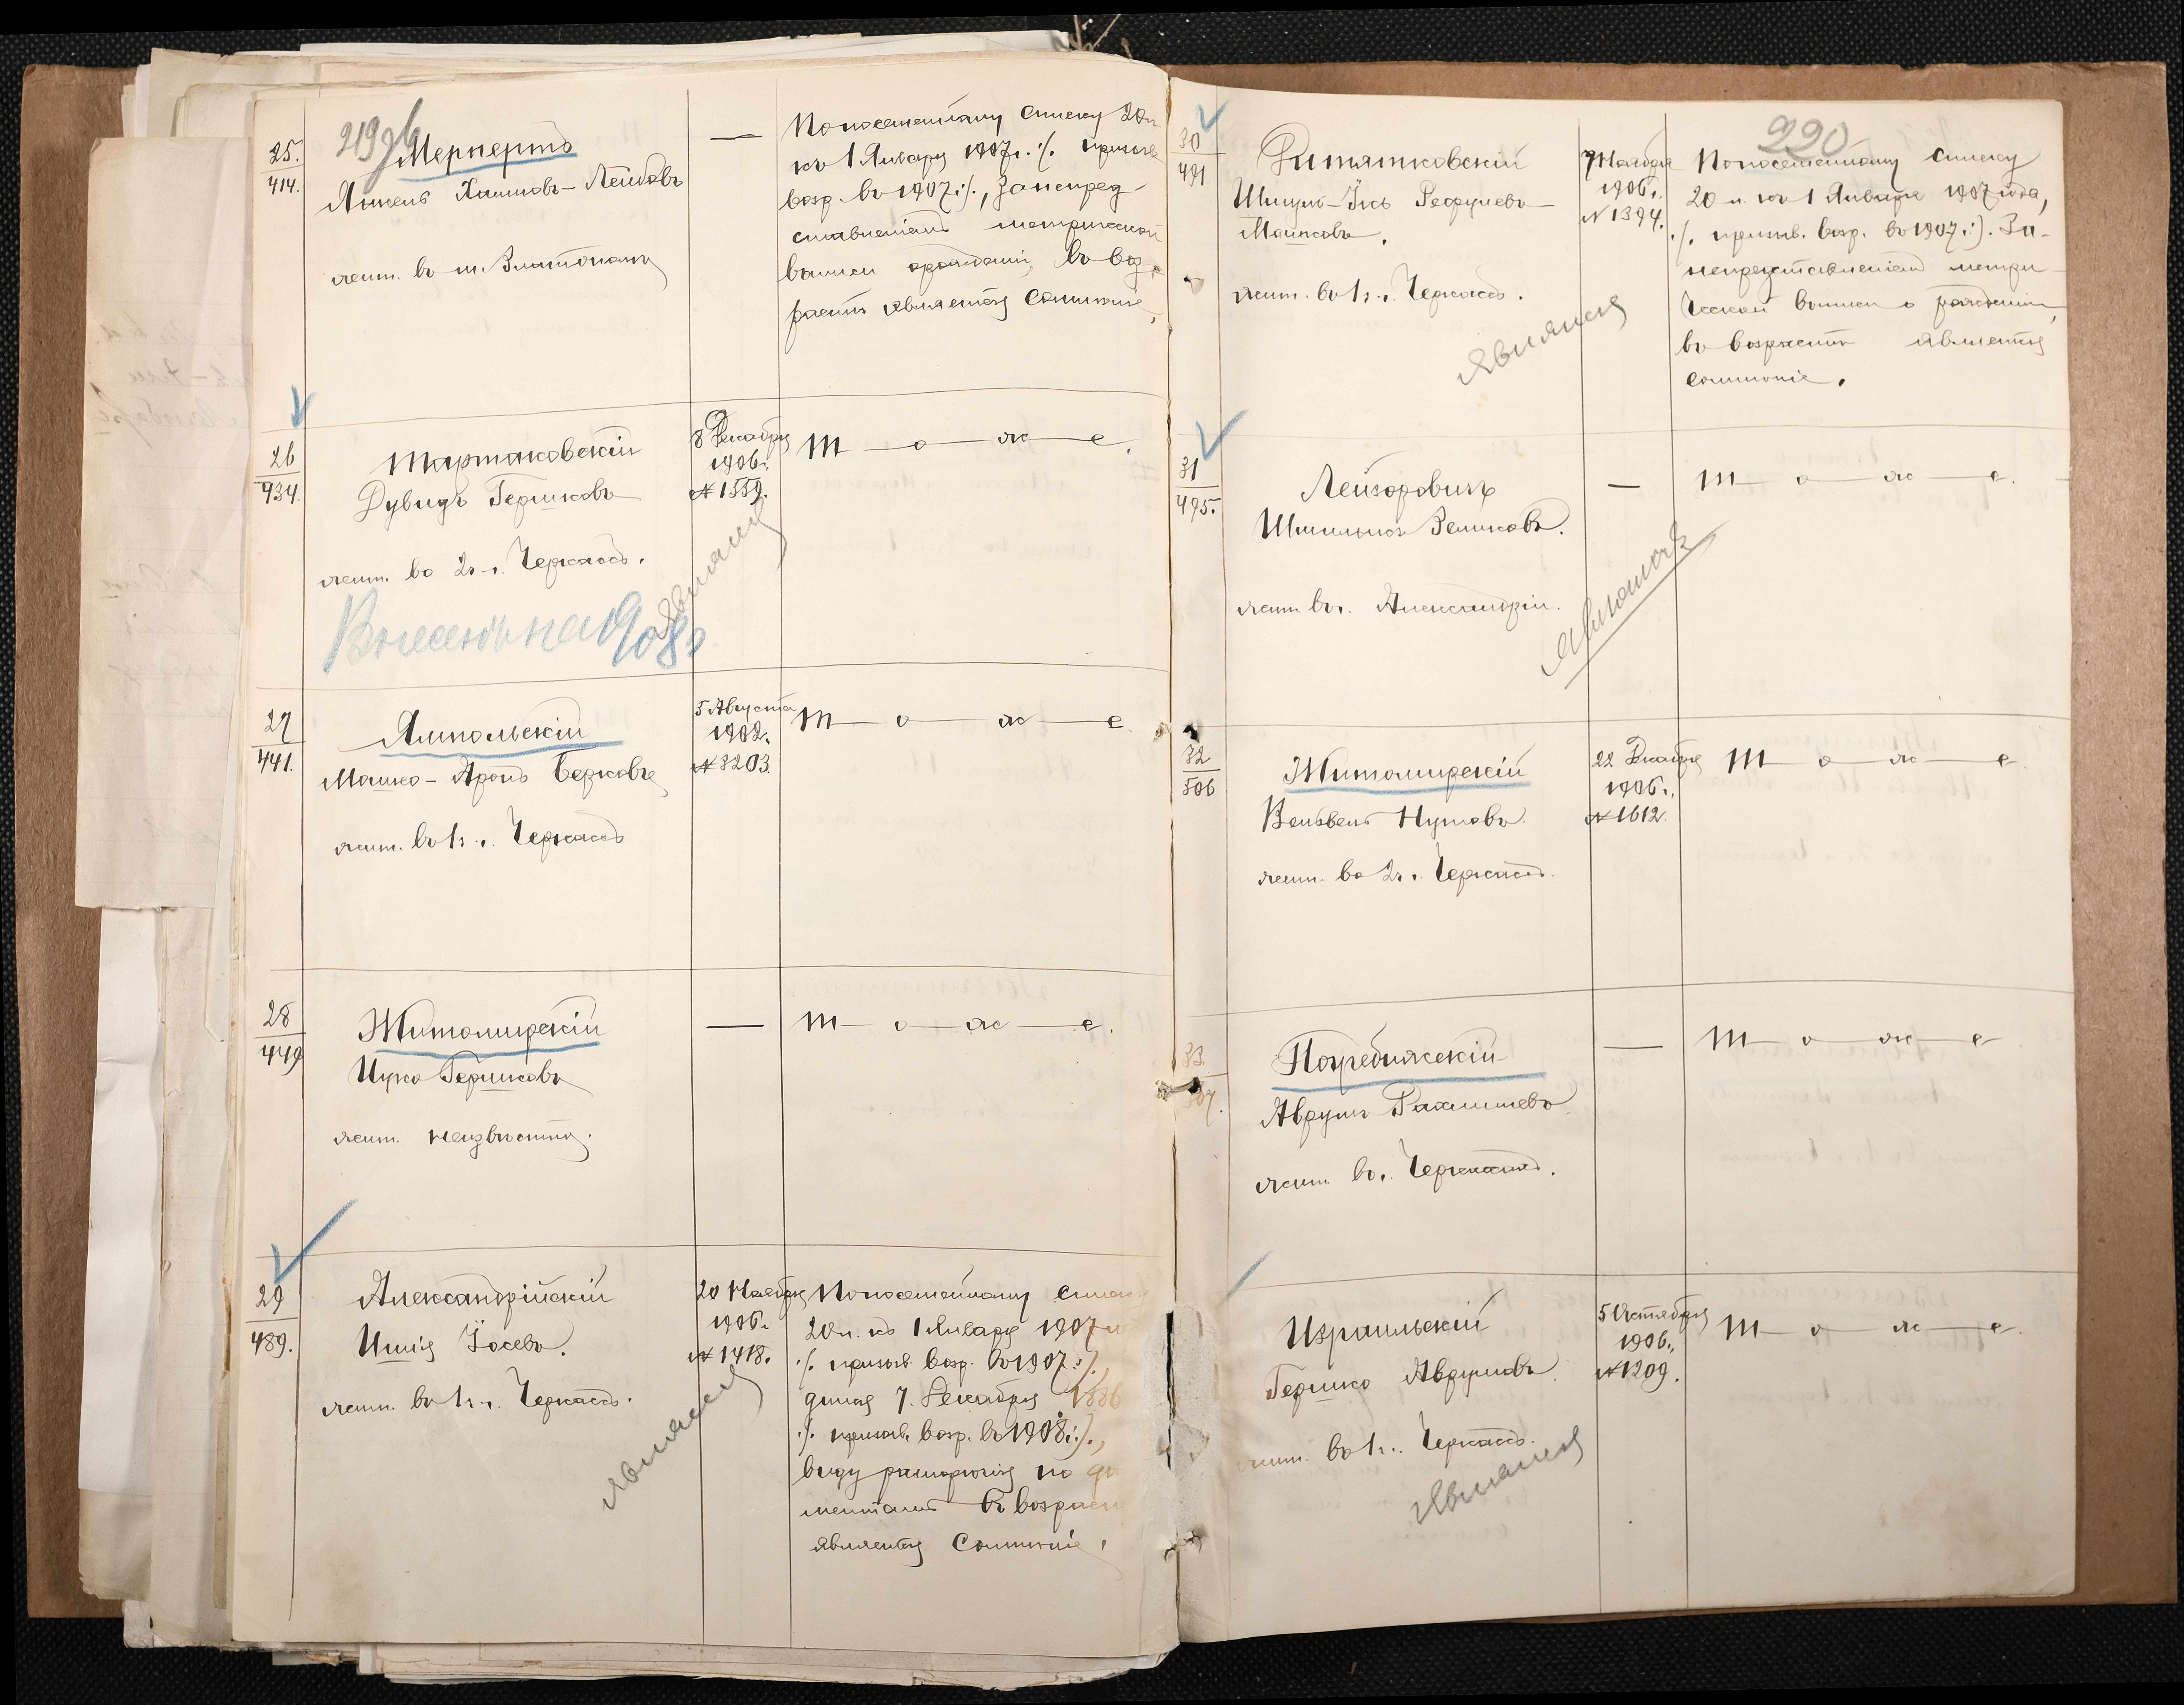 219об
25.
414.
Мерперть
Янкель Хаимовъ-Лейбовъ
жит. въ м. Златополѣ
—
По посемейному списку 20 л.
къ 1 Января 1907 г. /: призыв.
возр. въ 1907 :/, За непред-
ставленіемъ метрической
выписи о рожденіи, въ воз-
растѣ является сомнѣніе,
26
434.
Тартаковскій
Дувидъ Гершковъ
жит. во 2 ч. г. Черкассъ.
Внесенъ на 1908 г
8 Декабря
1906 г.
№ 1559.
Явился
Т — о — ж — е.
27
441.
Ямпольскій
Мошко-Аронъ Берковъ
жит. въ 1 ч. г. Черкассъ
5 Августа
1902.
№ 3203.
Т — о — ж — е.
28
449
Житомирскій
Ицко Гершковъ
жит. неизвѣстно.
—
Т — о — ж — е.
29
489.
Александрійскій
Ицшія Іосевъ.
жит. въ 1 ч. г. Черкассъ.
20 Ноября
1906 г.
№ 1418.
Явился
По посемейному списку
20 л. къ 1 Января 1907
/: призыв. возр. въ 1907 :/,
7 Декабря 1886
/: призыв. возр. въ 1908 г. :/,
виду разноречія по
ментамъ въ возрасте
является сомнѣніе,
220
30
491
Ритятковскій
Шмуль-Іось Рефулевъ-
Мошковъ.
жит. въ 1 ч. г. Черкассъ.
7 Ноября
1906 г.
№ 1394.
Явился
По посемейному списку
20 л. къ 1 Января 1907 года,
/: призыв. возр. въ 1907 :/. За
непредставленіемъ метри-
ческой выписи о рожденіи,
въ возрастѣ является
сомнѣніе.
31
495.
Лейзоровичъ
Шмилыкъ Зеликовъ.
жит. въ г. Александріи.
—
Т — о — ж — е.
32
506
Житомирскій
Вольвель Нутовъ.
жит. во 2 ч. г. Черкассъ.
22 Декабря
1906 г.
№ 1612.
Т — о — ж — е.
33.
507.
Погребижскій
Аврумъ Рахмилевъ
жит. въ г. Черкассахъ.
—
Т — о — ж — е
Израильскій
Гершко Аврумовъ.
жит. въ 1 ч. г. Черкассъ.
5 Октября
1906 г.
№ 1209.
Явился
Т — о — ж — е.